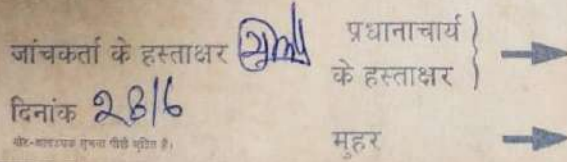 जांचकर्ता के हस्ताक्षर
प्रधानाचार्य
के हस्ताक्षर
दिनांक 28/6
नोट-आवश्यक सूचना पीछे मुद्रित है।
मुहर